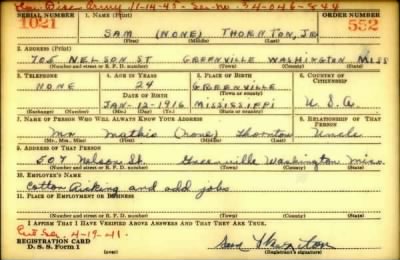 Hon Disc Army 11-14-45 - Ser-no. 34-046-844
SERIAL NUMBER 1. NAME (Print) ORDER NUMBER
1021 SAM (NONE) THORNTON, JR 552
(First) (Middle) (Last)
2. ADDRESS (Print)
705 NELSON ST GREENVILLE WASHINGTON MISS
(Number and street or R. F. D. number) (Town) (County) (State)
3. TELEPHONE 4. AGE IN YEARS 5. PLACE OF BIRTH 6. COUNTRY OF CITIZENSHIP
NONE 24 GREENVILLE
DATE OF BIRTH (Town or county)
JAN-12-1916 MISSISSIPPI U.S.A.
(Exchange) (Number) (Mo.) (Day) (Yr.) (State or country)
7. NAME OF PERSON WHO WILL ALWAYS KNOW YOUR ADDRESS 8. RELATIONSHIP OF THAT PERSON
Mr Mathis (none) Thornton Uncle
(Mr., Mrs., Miss) (First) (Middle) (Last)
9. ADDRESS OF THAT PERSON
507 Nelson St. Greenville Washington Miss.
(Number and street or R. F. D. number) (Town) (County) (State)
10. EMPLOYER'S NAME
Cotton Picking and odd jobs
11. PLACE OF EMPLOYMENT OR BUSINESS
(Number and street or R. F. D. number) (Town) (County) (State)
I AFFIRM THAT I HAVE VERIFIED ABOVE ANSWERS AND THAT THEY ARE TRUE.
4-19-41.
REGISTRATION CARD
D. S. S. Form 1 (Registrant's signature)
Sam Thornton